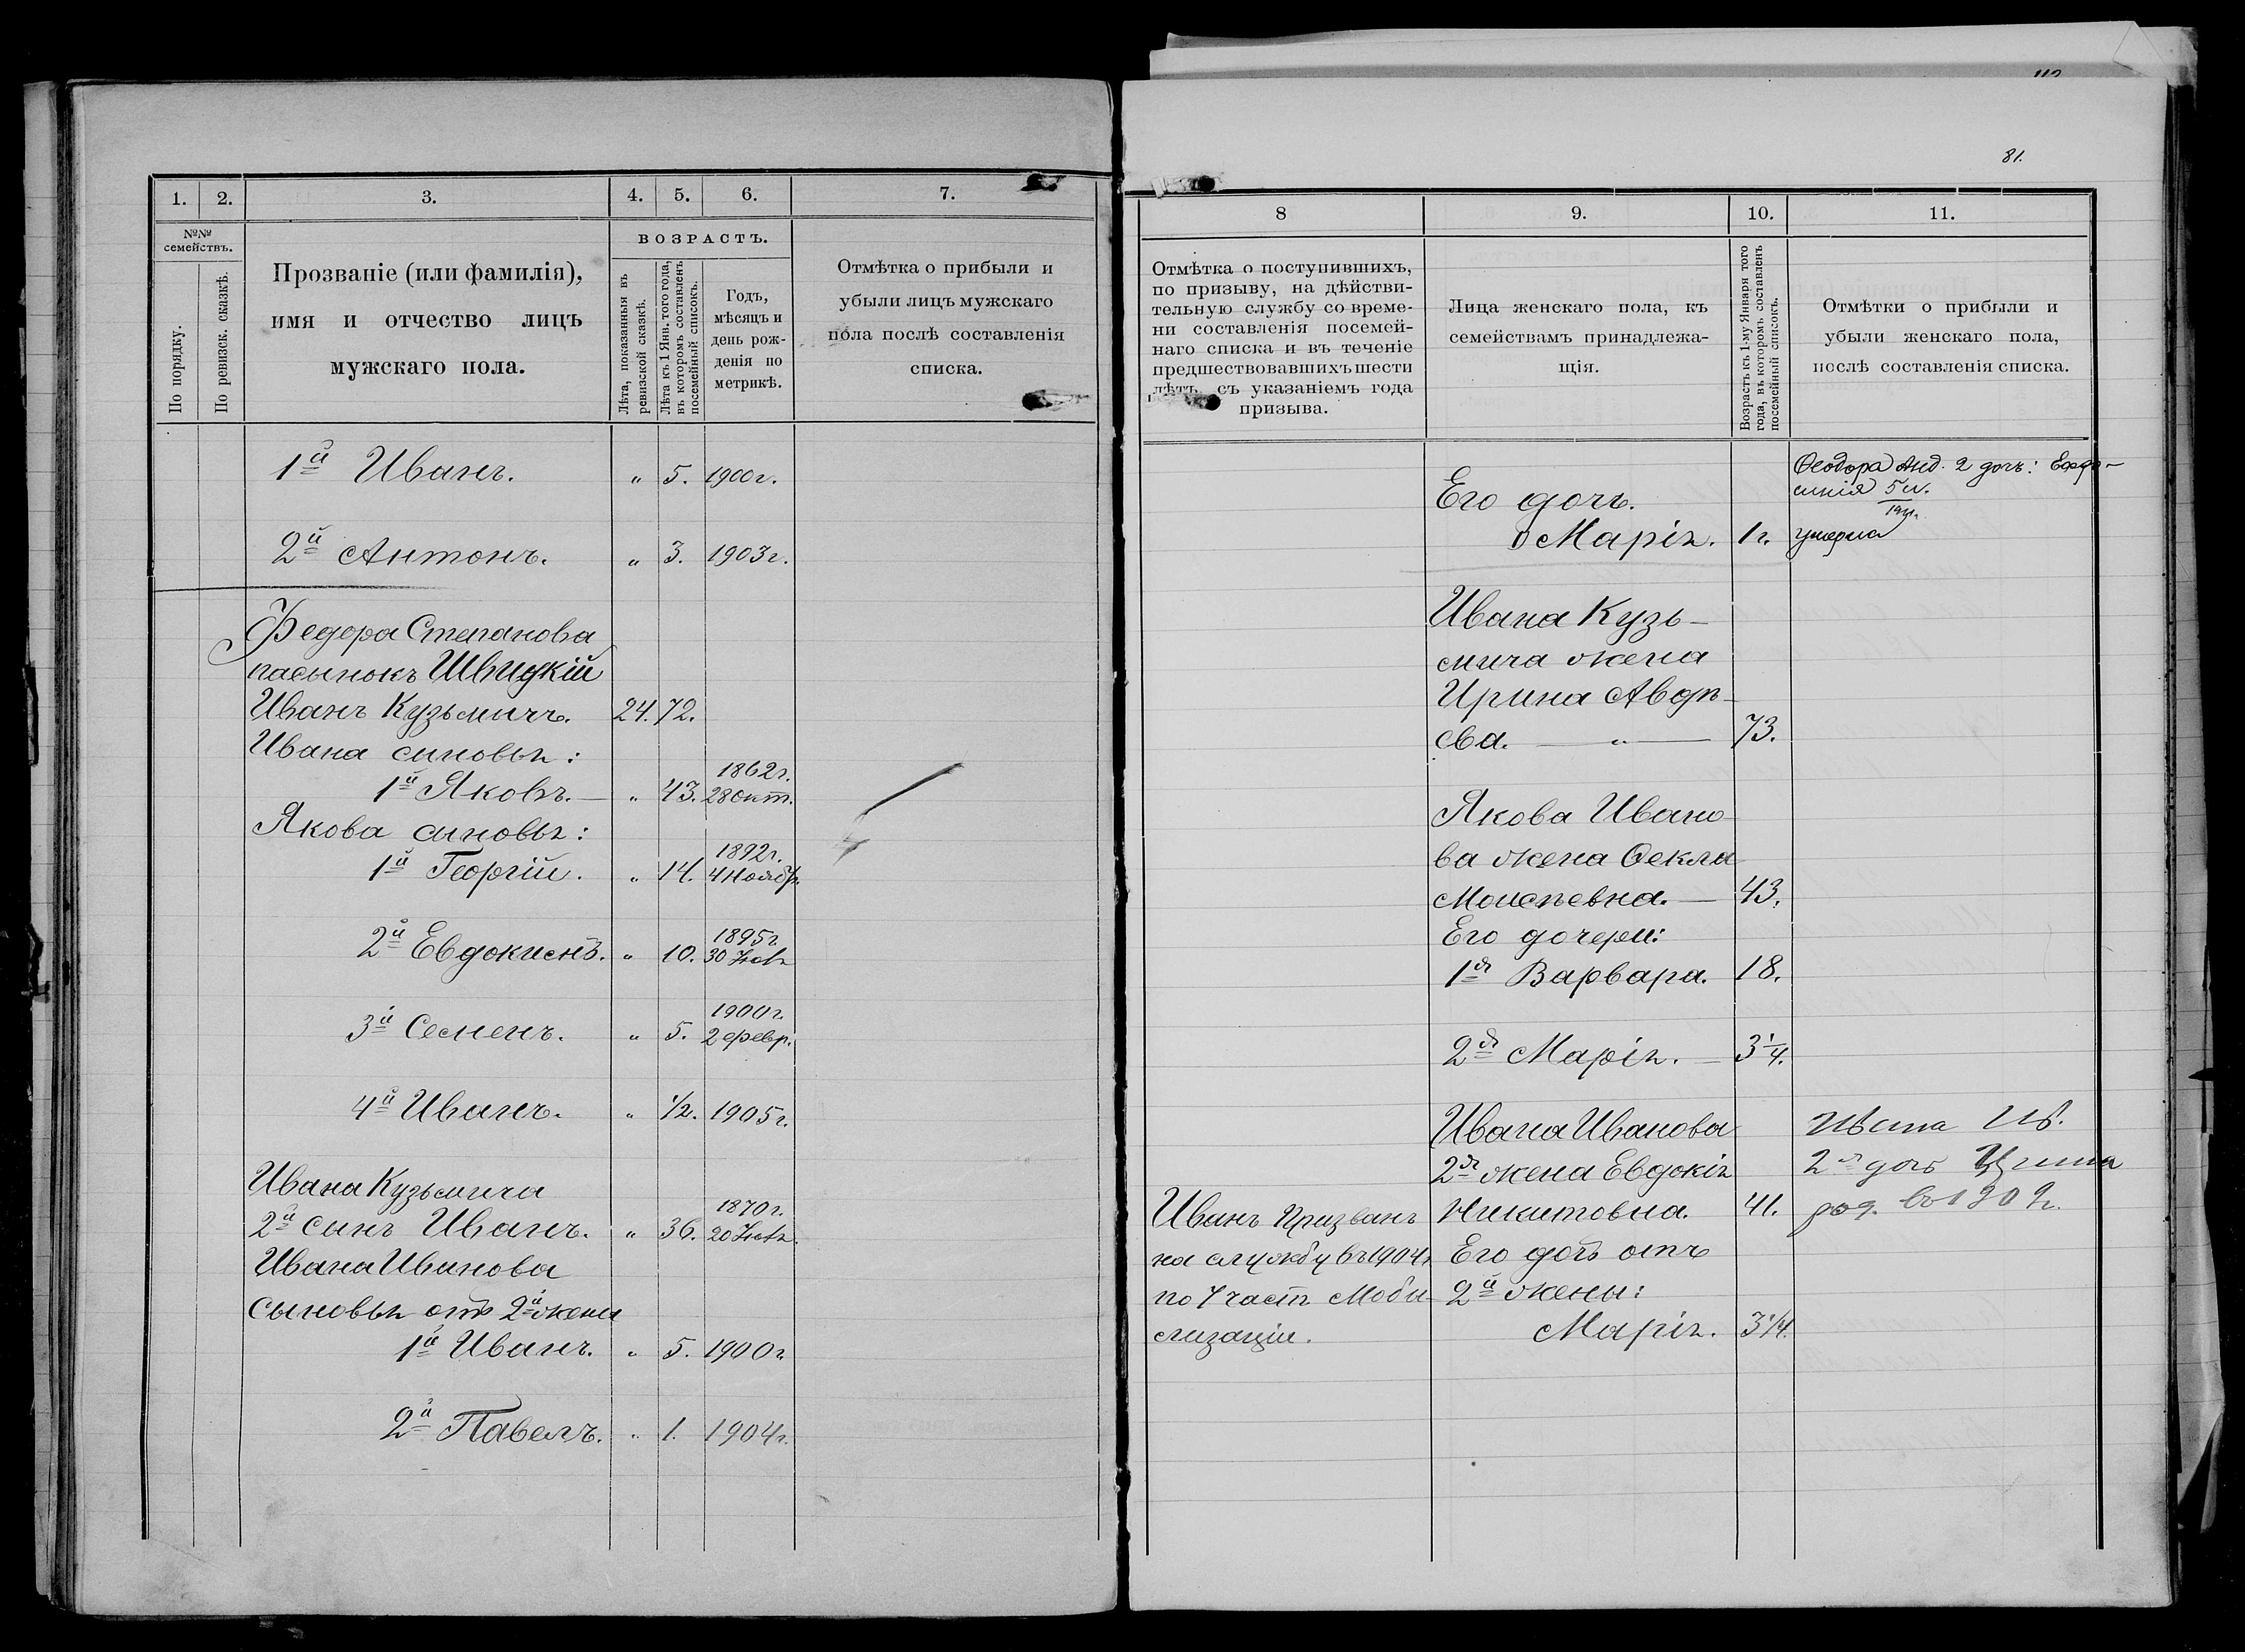 1. 2. 3. 4. 5. 6. 7.
№№ семействъ.
По порядку.
По ревизск. сказкѣ.
Прозваніе (или фамилія),
имя и отчество лицъ
мужскаго пола.
ВОЗРАСТЪ.
Лѣта, показанныя въ
ревизской сказкѣ.
Лѣта къ 1 Янв. того года,
въ которомъ составленъ
посемейный списокъ.
Годъ,
мѣсяцъ и
день рож-
денія по
метрикѣ.
Отмѣтка о прибыли и
убыли лицъ мужскаго
пола послѣ составленія
списка.
1й Иванъ. " 5. 1900г.
2й Антонъ. " 3. 1903г.
Федора Степанова
пасынокъ Швидкій
Иванъ Кузьмичъ. 24. 72.
Ивана сыновья:
1862г.
1й Яковъ. — " 43. 28 окт.
Якова сыновья:
1892г.
1й Георгій. " 14. 4 Ноябр.
1895г
2й Евдокимъ. " 10. 30
1900г.
3й Семенъ. " 5. 2 февр.
4й Иванъ. " 1/2. 1905г.
Ивана Кузьмича
1870г.
2й сынъ Иванъ. " 36. 20
Ивана Иванова
сыновья отъ 2й жены
1й Иванъ. " 5. 1900г.
2й Павелъ. " 1. 1904г.
81.
8 9. 10. 11.
Отмѣтка о поступившихъ,
по призыву, на дѣйстви-
тельную службу со време-
ни составленія посемей-
наго списка и въ теченіе
предшествовавшихъ шести
лѣтъ, съ указаніемъ года
призыва.
Лица женскаго пола, къ
семействамъ принадлежа-
щія.
Возрасть къ 1-му Января того
года, въ которомъ составленъ
посемейный списокъ.
Отмѣтки о прибыли и
убыли женскаго пола,
послѣ составленія списка.
Ѳеодора Анд. 2 дочь: Евфро-
синія
Его дочь.
Марія. 1г. умерла
Ивана Кузь-
мича жена
Ирина Авдѣ-
ева. — " — 73.
Якова Ивано-
ва жена Ѳекла
Моисѣевна. — 43.
Его дочери:
1я Варвара. 18.
2я Марія. — 3 1/4.
Ивана Иванова
2я жена Евдокія
Никитовна. 41.
Его дочь отъ
2й жены:
Марія. 3 1/4.
Иванъ призванъ
на службу въ 1904г
по части Моби-
лизаціи.
Ивана Ив.
2я дочь
род. въ 1909г.